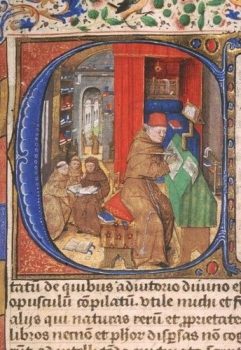 tatū de quibus adiutorio diuino e
opusculū cōpilatū. vtile michi et f
alijs qui naturas rerū et proprietate
libros necnō et phōr dispsas nō co